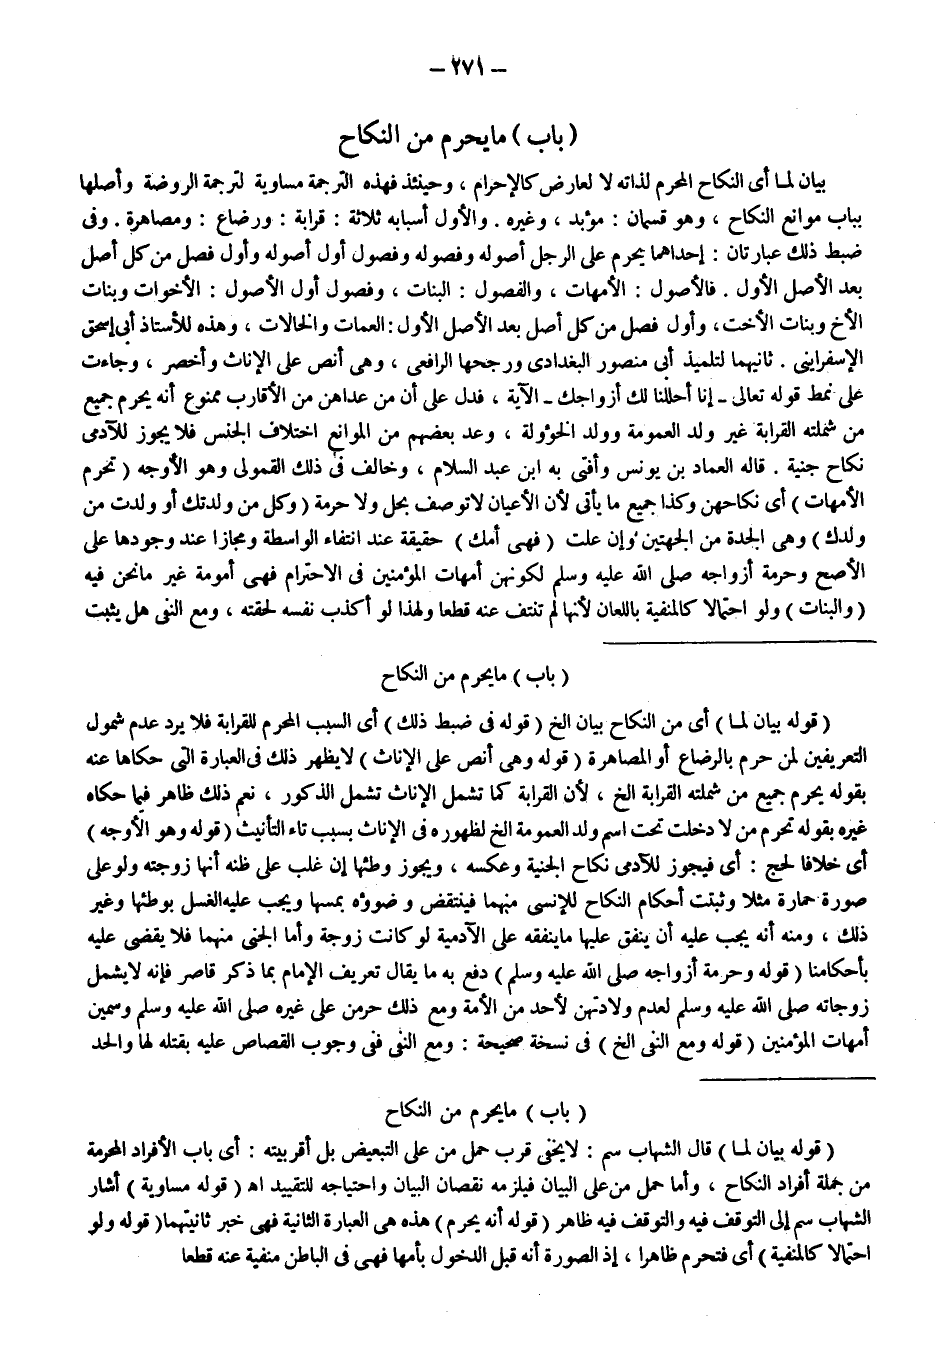 – ٢٧١ –
( باب ) مايحرم من النكاح
بيان لما أى النكاح المحرم لذاته لا لعارض كالإحرام ، وحينئذ فهذه الترجمة مساوية لترجمة الروضة وأصلها
بباب موانع النكاح ، وهو قسمان : مؤبد ، وغيره . والأول أسبابه ثلاثة : قرابة : ورضاع : ومصاهرة . وفى
ضبط ذلك عبارتان : إحداهما يحرم على الرجل أصوله وفصوله وفصول أول أصوله وأول فصل من كل أصل
بعد الأصل الأول . فالأصول : الأمهات ، والفصول : البنات ، وفصول أول الأصول : الأخوات وبنات
الأخ وبنات الأخت ، وأول فصل من كل أصل بعد الأصل الأول : العمات والخالات ، وهذه للأستاذ أبى إسحق
الإسفراينى . ثانيهما لتلميذ أبى منصور البغدادى ورجحها الرافعى ، وهى أنص على الإناث وأخصر ، وجاءت
على نمط قوله تعالى ــ إنا أحللنا لك أزواجك ــ الآية ، فدل على أن من عداهن من الأقارب ممنوع أنه يحرم جميع
من شملته القرابة غير ولد العمومة وولد الخؤولة ، وعد بعضهم من الموانع اختلاف الجنس فلا يجوز للآدمى
نكاح جنية . قاله العماد بن يونس وأفتى به ابن عبد السلام ، وخالف فى ذلك القمولى وهو الأوجه ( تحرم
الأمهات ) أى نكاحهن وكذا جميع ما يأتى لأن الأعيان لاتوصف بحل ولا حرمة ( وكل من ولدتك أو ولدت من
ولدك ) وهى الجدة من الجهتين وإن علت ( فهى أمك ) حقيقة عند انتفاء الواسطة ومجازا عند وجودها على
الأصح وحرمة أزواجه صلى الله عليه وسلم لكونهن أمهات المؤمنين فى الاحترام فهى أمومة غير مانحن فيه
( والبنات ) ولو احتمالا كالمنفية باللعان لأنها لم تنتف عنه قطعا ولهذا لو أكذب نفسه لحقته ، ومع النفى هل يثبت
( باب ) مايحرم من النكاح
( قوله بيان لما ) أى من النكاح بيان الخ ( قوله فى ضبط ذلك ) أى السبب المحرم للقرابة فلا يرد عدم شمول
التعريفين لمن حرم بالرضاع أو المصاهرة ( قوله وهى أنص على الإناث ) لايظهر ذلك فى العبارة التى حكاها عنه
بقوله يحرم جميع من شملته القرابة الخ ، لأن القرابة كما تشمل الإناث تشمل الذكور ، نعم ذلك ظاهر فيما حكاه
غيره بقوله تحرم من لا دخلت تحت اسم ولد العمومة الخ لظهوره فى الإناث بسبب تاء التأنيث ( قوله وهو الأوجه )
أى خلافا لحج : أى فيجوز للآدمى نكاح الجنية وعكسه ، ويجوز وطئها إن غلب على ظنه أنها زوجته ولو على
صورة حمارة مثلا وثبتت أحكام النكاح للإنسى منهما فينتقض وضوؤه بمسها ويجب عليه الغسل بوطئها وغير
ذلك ، ومنه أنه يجب عليه أن ينفق عليها ماينفقه على الآدمية لو كانت زوجة وأما الجنى منهما فلا يقضى عليه
بأحكامنا ( قوله وحرمة أزواجه صلى الله عليه وسلم ) دفع به ما يقال تعريف الإمام بما ذكر قاصر فإنه لايشمل
زوجاته صلى الله عليه وسلم لعدم ولادتهن لأحد من الأمة ومع ذلك حرمن على غيره صلى الله عليه وسلم وسمين
أمهات المؤمنين ( قوله ومع النفى الخ ) فى نسخة صحيحة : ومع النفى ففى وجوب القصاص عليه بقتله لها والحد
( باب ) مايحرم من النكاح
( قوله بيان لما ) قال الشهاب سم : لايخفى قرب حمل من على التبعيض بل أقربيته : أى باب الأفراد المحرمة
من جملة أفراد النكاح ، وأما حمل من على البيان فيلزمه نقصان البيان واحتياجه للتقييد اه ( قوله مساوية ) أشار
الشهاب سم إلى التوقف فيه والتوقف فيه ظاهر ( قوله أنه يحرم ) هذه هى العبارة الثانية فهى خبر ثانيتهما ( قوله ولو
احتمالا كالمنفية ) أى فتحرم ظاهرا ، إذ الصورة أنه قبل الدخول بأمها فهى فى الباطن منفية عنه قطعا